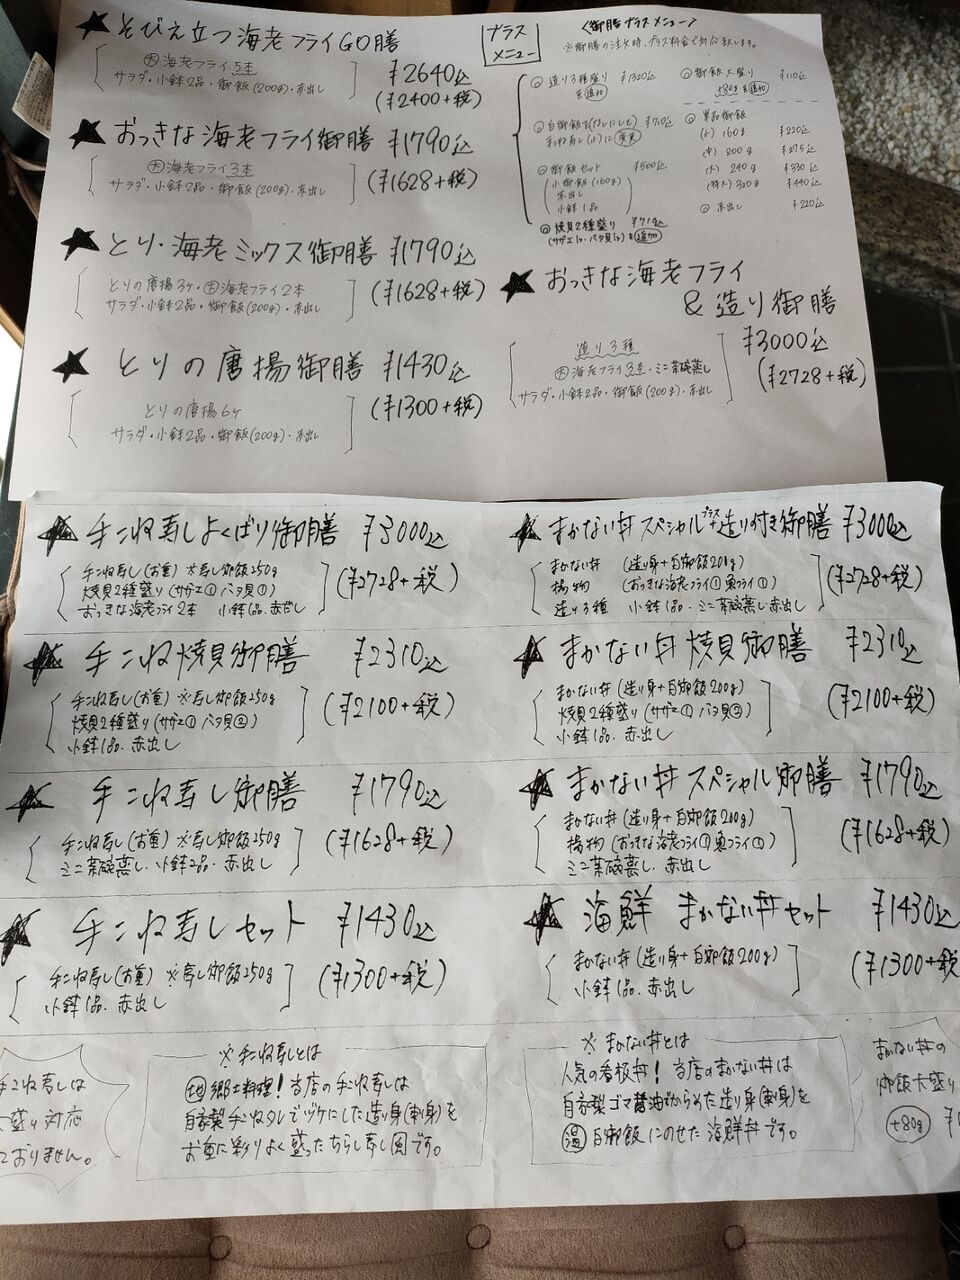 ★ そびえ立つ海老フライGO膳
大 海老フライ5本
サラダ・小鉢2品・御飯(200g)・赤出し
¥2640込
(¥2400+税)
★ おっきな海老フライ御膳 ¥1790込
大 海老フライ3本
サラダ・小鉢2品・御飯(200g)・赤出し
(¥1628+税)
★ とり・海老ミックス御膳 ¥1790込
とりの唐揚3ヶ・大 海老フライ2本
サラダ・小鉢2品・御飯(200g)・赤出し
(¥1628+税)
★ とりの唐揚御膳 ¥1430込
とりの唐揚6ヶ
サラダ・小鉢2品・御飯(200g)・赤出し
(¥1300+税)
プラス
メニュー
〈御膳プラスメニュー〉
※御膳の注文時、プラス料金で対応致します。
◎ 造り3種盛り ¥1320込
を追加
◎ 白御飯を(なしにして) ¥710込
手こね寿し(小)に変更
◎ 御飯セット ¥500込
小御飯(160g)
赤出し
小鉢1品
◎ 焼貝2種盛り ¥710込
(サザエ1ヶ・バタ貝1ヶ)を追加
◎ 御飯大盛り ¥110込
+80gを追加
◎ 単品御飯
(小) 160g ¥220込
(中) 200g ¥275込
(大) 240g ¥330込
(特大) 320g ¥440込
◎ 赤出し ¥220込
★ おっきな海老フライ
&造り御膳
造り3種
大 海老フライ3本・ミニ茶碗蒸し
サラダ・小鉢2品・御飯(200g)・赤出し
¥3000込
(¥2728+税)
★ 手こね寿しよくばり御膳 ¥3000込
手こね寿し(お重) ※寿し御飯250g
焼貝2種盛り(サザエ① バタ貝①)
おっきな海老フライ2本 小鉢1品・赤出し
(¥2728+税)
★ 手こね焼貝御膳 ¥2310込
手こね寿し(お重) ※寿し御飯250g
焼貝2種盛り(サザエ① バタ貝②)
小鉢1品・赤出し
(¥2100+税)
★ 手こね寿し御膳 ¥1790込
手こね寿し(お重) ※寿し御飯250g
ミニ茶碗蒸し・小鉢2品・赤出し
(¥1628+税)
★ 手こね寿しセット ¥1430込
手こね寿し(お重) ※寿し御飯250g
小鉢1品・赤出し
(¥1300+税)
★ まかない丼スペシャル+プラス造り付き御膳 ¥3000込
まかない丼 (造り身+白御飯200g)
揚物 (おっきな海老フライ① 魚フライ①)
造り3種 小鉢1品・ミニ茶碗蒸し・赤出し
(¥2728+税)
★ まかない丼焼貝御膳 ¥2310込
まかない丼(造り身+白御飯200g)
焼貝2種盛り(サザエ① バタ貝②)
小鉢1品・赤出し
(¥2100+税)
★ まかない丼スペシャル御膳 ¥1790込
まかない丼(造り身+白御飯200g)
揚物(おっきな海老フライ① 魚フライ①)
ミニ茶碗蒸し・赤出し
(¥1628+税)
★ 海鮮まかない丼セット ¥1430込
まかない丼(造り身+白御飯200g)
小鉢1品・赤出し
(¥1300+税
手こね寿しは
大盛り対応
ておりません。
※手こね寿しとは
地郷土料理!当店の手こね寿しは
自家製手こねタレでヅケにした造り身(刺身)を
お重に彩りよく盛ったちらし寿し風です。
※まかない丼とは
人気の看板丼!当店のまかない丼は
自家製ゴマ醤油でからめた造り身(刺身)を
温白御飯にのせた海鮮丼です。
まかない丼の
御飯大盛り
+80g